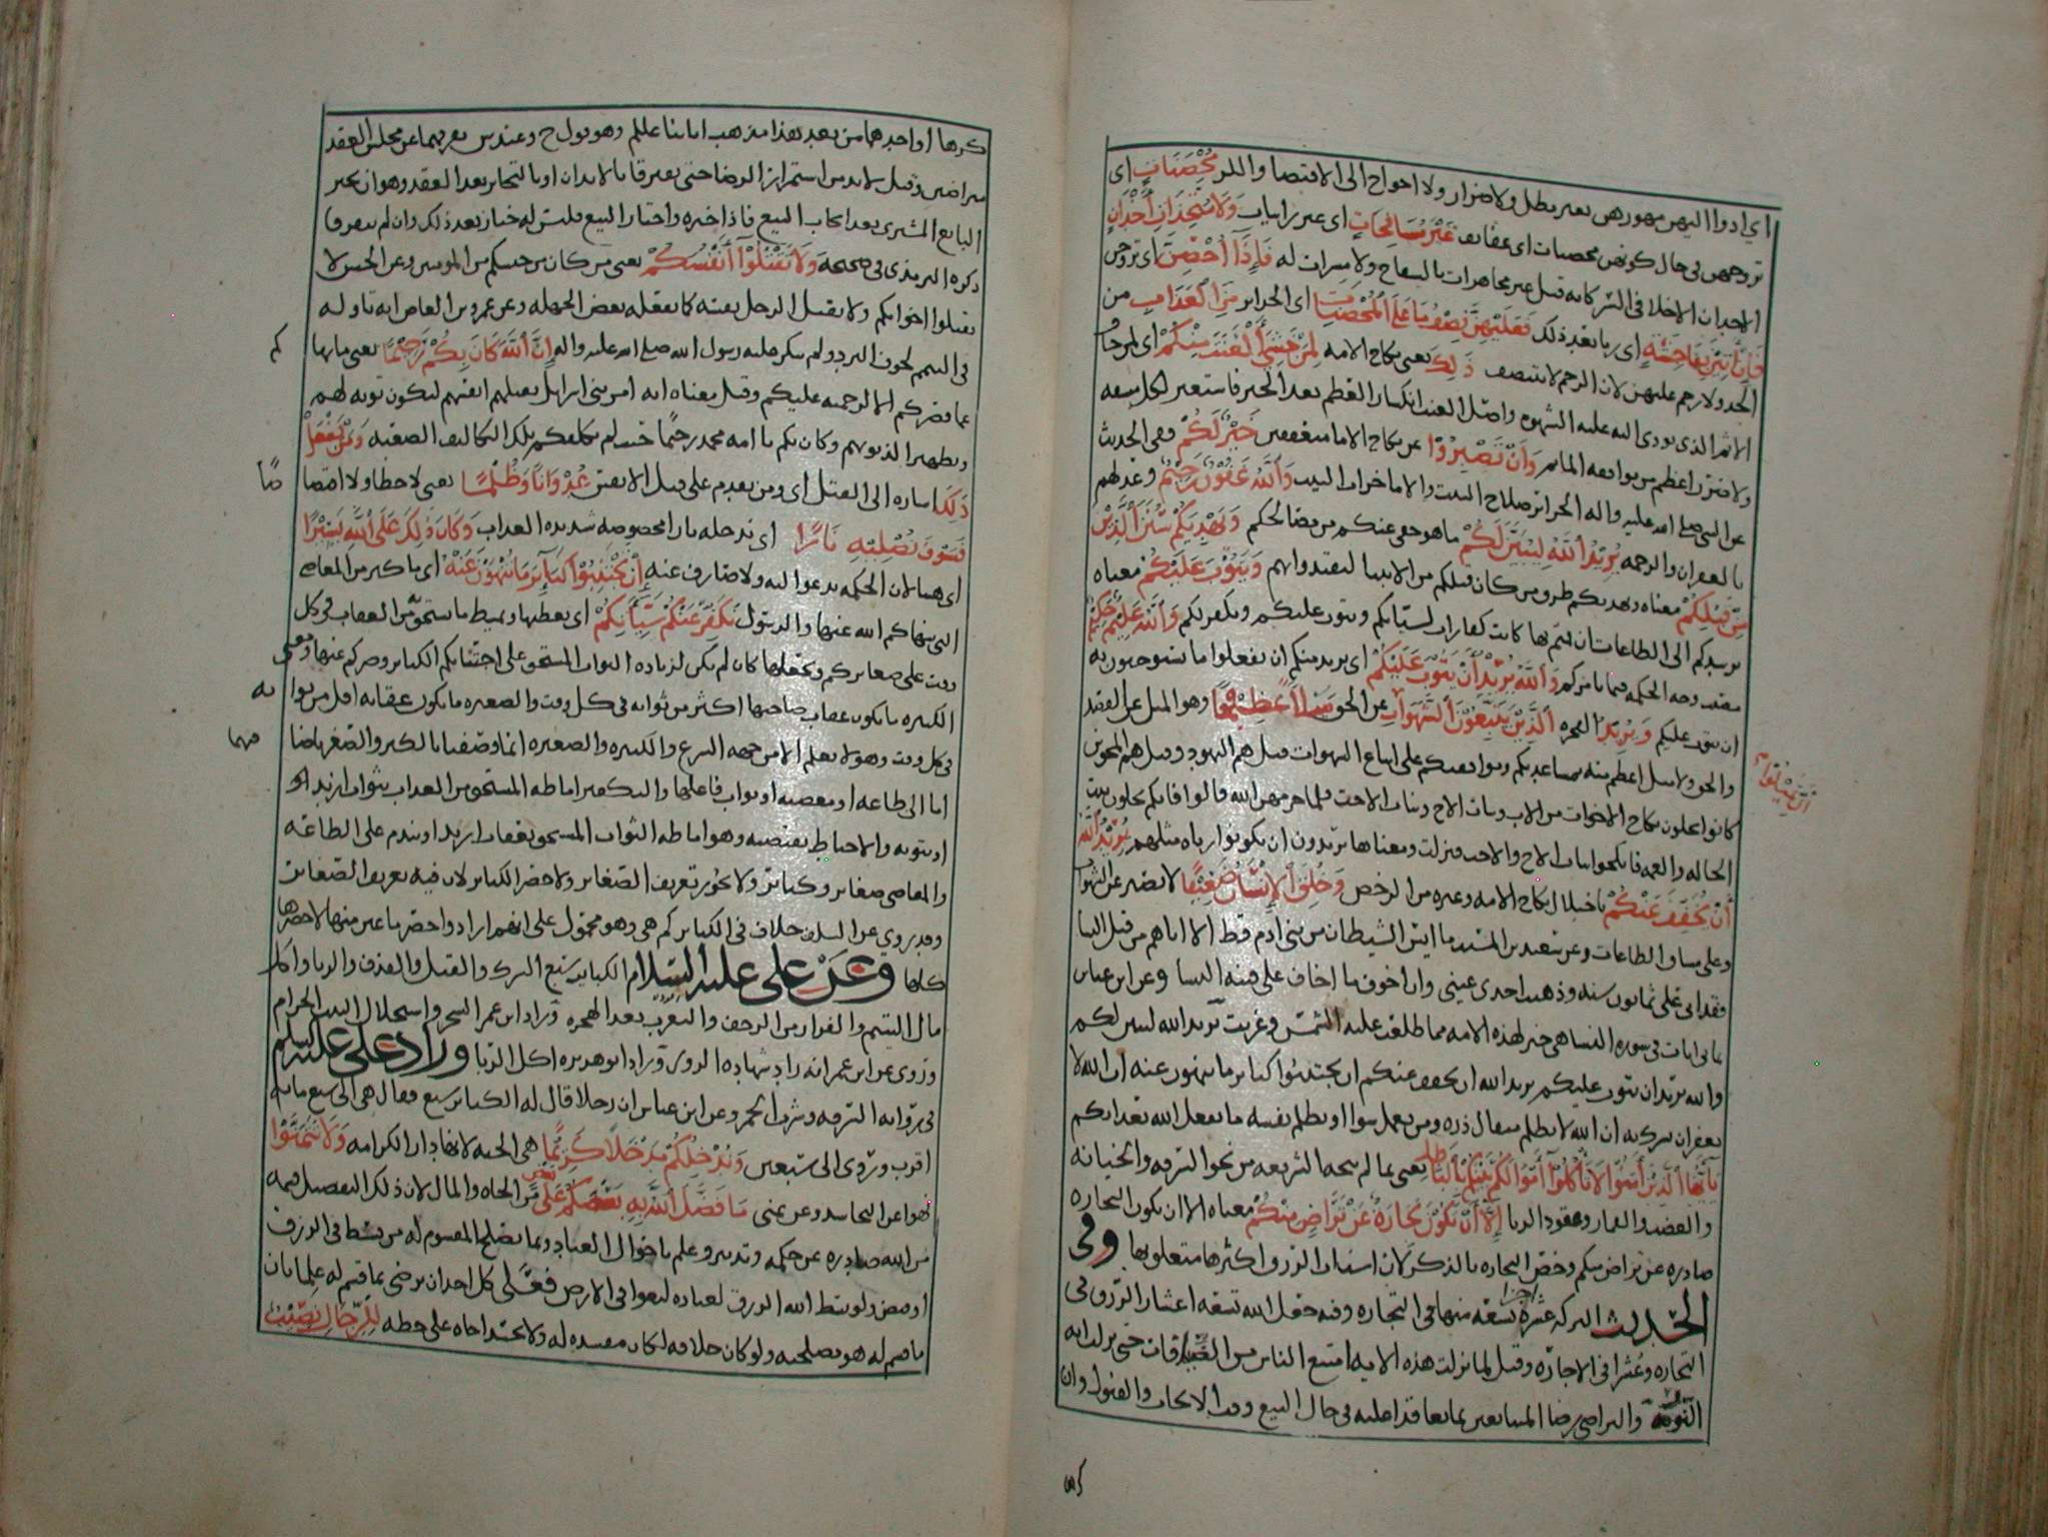 اي ادوا اليهن مهورهن بغير مطل ولا ضرار ولا احواج الى الاقتضا واللز مُحْصَنَاتٍ اى
تزوجهن فى حال كونهن محصنات اى عفايف غَيْرَ مُسَافِحَاتٍ اى غير زانيات وَلَا مُتَّخِذَاتِ أَخْدَانٍ
الاخدان الاخلا فى السر كانه قيل غير مجاهرات بالسفاح ولا مسرات له فَإِذَا أُحْصِنَّ اى تزوجن
فَإِنْ أَتَيْنَ بِفَاحِشَةٍ اى زنا بعد ذلك فَعَلَيْهِنَّ نِصْفُ مَا عَلَى الْمُحْصَنَاتِ اى الحراير مِنَ الْعَذَابِ من
الحد ولا رجم عليهن لان الرجم لا يتنصف ذَلِكَ يعنى نكاح الامه لِمَنْ خَشِيَ الْعَنَتَ مِنْكُمْ اى لمن خاف
الاثم الذى يودى اليه غلبه الشهوه واصل العنت انكسار العظم بعد الجبر فاستعير لكل مشقه
ولا ضرر اعظم من مواقعه الماثم وَأَنْ تَصْبِرُوا عن نكاح الاما متعففين خَيْرٌ لَكُمْ وفى الحديث
عن النبى صلى الله عليه واله الحراير صلاح البيت والاما خراب البيت وَاللَّهُ غَفُورٌ رَحِيمٌ وعد لهم
بالغفران والرحمه يُرِيدُ اللَّهُ لِيُبَيِّنَ لَكُمْ ما هو خفى عنكم من مصالحكم وَيَهْدِيَكُمْ سُنَنَ الَّذِينَ
مِنْ قَبْلِكُمْ معناه ويهديكم طرق من كان قبلكم من الانبيا لتقتدوا بهم وَيَتُوبَ عَلَيْكُمْ معناه
يرشدكم الى الطاعات ان قمتم بها كانت كفارات لسيأتكم ويتوب عليكم ويكفر لكم وَاللَّهُ عَلِيمٌ حَكِيمٌ
وجه الحكمه فيما يامركم وَاللَّهُ يُرِيدُ أَنْ يَتُوبَ عَلَيْكُمْ اى يريد منكم ان تفعلوا ما تستوجبون به
ان يتوب عليكم وَيُرِيدُ الفجره الَّذِينَ يَتَّبِعُونَ الشَّهَوَاتِ عن الحق مَيْلًا عَظِيمًا وهو الميل عن القصد
أَنْ تَمِيلُوا
والحق ولا ميل اعظم منه بمساعدتكم وموافقتكم على اتباع الشهوات قيل هم اليهود وقيل هم المجوس
كانوا يحلون نكاح الاخوات من الاب وبنات الاخ وبنات الاخت فلما حرمهن الله قالوا فانكم تحلون بنت
الخاله والعمه فانكحوا بنات الاخ والاخت فنزلت ومعناها يريدون ان تكونوا زناه مثلهم يُرِيدُ اللَّهُ
أَنْ يُخَفِّفَ عَنْكُمْ باحلال نكاح الامه وغيره من الرخص وَخُلِقَ الْإِنْسَانُ ضَعِيفًا لا يصبر عن الشهوات
وعلى مشاق الطاعات وعن سعيد بن المسيب ما ايس الشيطان من بنى ادم قط الا اتاهم من قبل النسا
فقد اتى على ثمانون سنه وذهبت احدى عينى وان اخوف ما اخاف على فتنه النسا وعن ابن عباس
ثمانى ايات فى سوره النسا هى خير لهذه الامه مما طلعت عليه الشمس وغربت يريد الله ليبين لكم
والله يريد ان يتوب عليكم يريد الله ان يخفف عنكم ان تجتنبوا كباير ما تنهون عنه ان الله لا
يغفر ان يشرك به ان الله لا يظلم مثقال ذره ومن يعمل سوا او يظلم نفسه ما يفعل الله بعذابكم
يَا أَيُّهَا الَّذِينَ آمَنُوا لَا تَأْكُلُوا أَمْوَالَكُمْ بَيْنَكُمْ بِالْبَاطِلِ يعنى بما لم يبحه الشريعه من نحو السرقه والخيانه
والغصب والقمار وعقود الربا إِلَّا أَنْ تَكُونَ تِجَارَةً عَنْ تَرَاضٍ مِنْكُمْ معناه الا ان يكون التجاره
صادره عن تراض منكم وخص التجاره بالذكر لان اسباب الرزق اكثرها متعلق بها وفى
الحديث البركه عشره اجزا تسعه منها فى التجاره وفيه جعل الله تسعه اعشار الرزق فى
التجاره وعشرا فى الاجاره وقيل لما نزلت هذه الايه امتنع الناس من الضيافات حتى نزلت ايه
النور والتراضى رضا المتبايعين بما تعاقدا عليه فى حال البيع وقت الايجاب والقبول وان
كرها او احدهما من بعد هذا مذهب ايمتنا عليلم وهو قول ح وعند س تفرقهما عن مجلس العقد
متراضيين وقيل لا بد من استمرار الرضا حتى يفترقا بالابدان او بالتخاير بعد العقد وهو ان يخير
البايع المشترى بعد ايجاب البيع فاذا خيره واختار البيع فليس له خيار بعد ذلك وان لم يتفرقا
ذكره الترمذى فى صحيحه وَلَا تَقْتُلُوا أَنْفُسَكُمْ يعنى من كان من جنسكم من المومنين وعن الحسن لا
تقتلوا اخوانكم ولا يقتل الرجل نفسه كما يفعله بعض الجهله وعن عمرو بن العاص انه تاوله
فى التيمم لخوف البرد ولم ينكر عليه رسول الله صلى الله عليه واله إِنَّ اللَّهَ كَانَ بِكُمْ رَحِيمًا يعنى ما نهاكم
عما يضركم الا لرحمته عليكم وقيل معناه انه امر بنى اسرايل بقتلهم انفسهم ليكون توبه لهم
وتطهيرا لذنوبهم وكان بكم يا امه محمد رحيما حيث لم يكلفكم بتلك التكاليف الصعبه وَمَنْ يَفْعَلْ
ذَلِكَ اشاره الى القتل اى ومن يقدم على قتل الانفس عُدْوَانًا وَظُلْمًا يعنى لا خطا ولا اقتصاصا
فَسَوْفَ نُصْلِيهِ نَارًا اى ندخله نارا مخصوصه شديده العذاب وَكَانَ ذَلِكَ عَلَى اللَّهِ يَسِيرًا
اى هينا لان الحكمه تدعوا اليه ولا صارف عنه إِنْ تَجْتَنِبُوا كَبَائِرَ مَا تُنْهَوْنَ عَنْهُ اى ما كبر من المعاصى
التى ينهاكم الله عنها والرسول نُكَفِّرْ عَنْكُمْ سَيِّئَاتِكُمْ اى نغطيها ونميط ما تستحق من العقاب فى كل
وقت على صغايركم ونجعلها كان لم تكن لزياده الثواب المستحق على اجتنابكم الكباير وصبركم عنها ومعنى
الكبيره ما يكون عقاب صاحبها اكثر من ثوابه فى كل وقت والصغيره ما يكون عقابه اقل من ثوابه
فى كل وقت وهو لا يعلم الا من جهه الشرع والكبيره والصغيره انما وصفتا بالكبر والصغر باضافتهما
اما الى طاعه او معصيه او ثواب فاعلها والتكفير اماطه المستحق من العذاب بثواب ازيد او
او بتوبه والاحباط نقيضه وهو اماطه الثواب المستحق بعقاب ازيد او بندم على الطاعه
والمعاصى صغاير وكباير ولا يجوز تعريف الصغاير ولا حصر الكباير لان فيه تعريف الصغاير
وقد روى عن السلف خلاف فى الكباير كم هى وهو محمول على انهم ارادوا حصر ما عين منها لا حصرها
كلها وعن على عليه السلام الكباير سبع الشرك والقتل والقذف والربا واكل
مال اليتيم والفرار من الزحف والتعرب بعد الهجره وزاد ابن عمر السحر واستحلال البيت الحرام
وروى عن ابن عمر انه زاد شهاده الزور وزاد ابو هريره اكل الربا وزاد على عليه السلم
فى روايه السرقه وشرب الخمر وعن ابن عباس ان رجلا قال له الكباير سبع فقال هى الى سبع مايه
اقرب وروى الى سبعين وَنُدْخِلْكُمْ مُدْخَلًا كَرِيمًا هى الجنه لانها دار الكرامه وَلَا تَتَمَنَّوْا
نهوا عن التحاسد وعن تمنى مَا فَضَّلَ اللَّهُ بِهِ بَعْضَكُمْ عَلَى بَعْضٍ من الجاه والمال لان ذلك التفضيل قسمه
من الله صادره عن حكمه وتدبير وعلم باحوال العباد وبما يصلح المقسوم له من بسط فى الرزق
او قبض ولو بسط الله الرزق لعباده لبغوا فى الارض فعلى كل احد ان يرضى بما قسم له علما بان
ما قسم له هو مصلحته ولو كان خلافه لكان مفسده له ولا يحسد اخاه على حظه لِلرِّجَالِ نَصِيبٌ